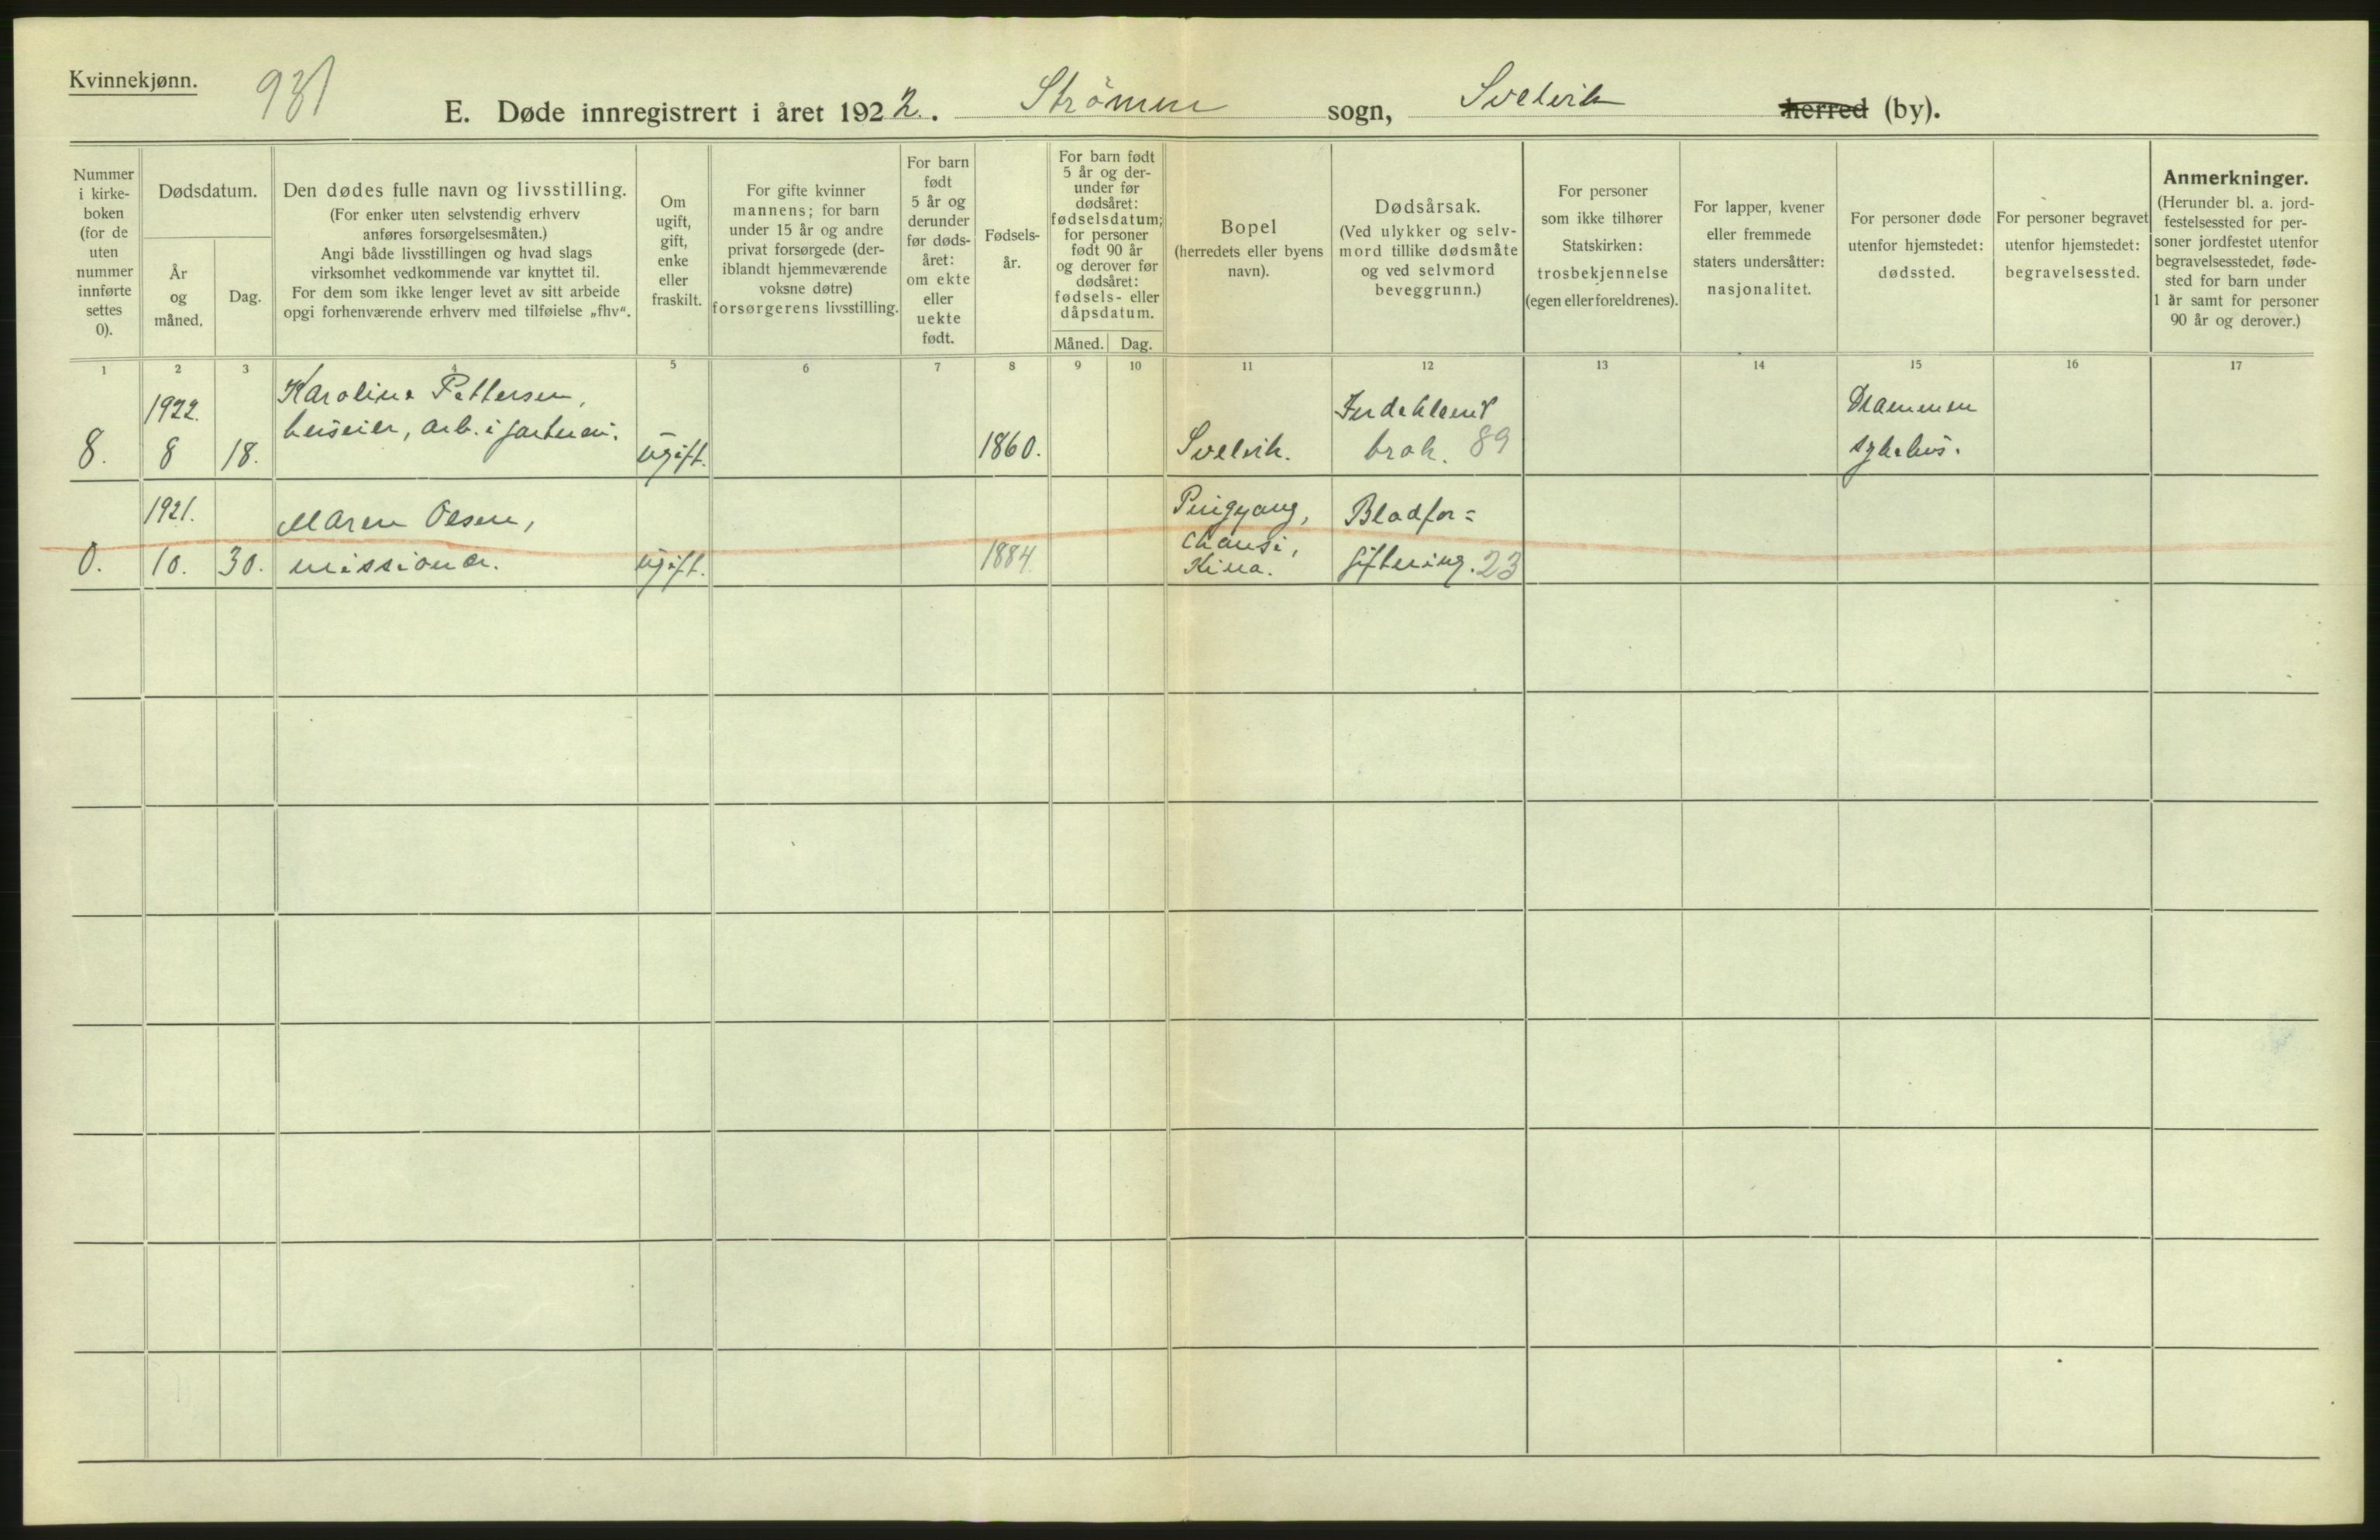 Kvinnekjønn.
931
E. Døde innregistrert i året 1922. Strømm sogn, Svelvik herred (by).
Nummer
i kirke-
boken
(for de
uten
nummer
innførte
settes
0).
Dødsdatum.
År
og
måned.
Dag.
Den dødes fulle navn og livsstilling.
(For enker uten selvstendig erhverv
anføres forsørgelsesmåten.)
Angi både livsstillingen og hvad slags
virksomhet vedkommende var knyttet til.
For dem som ikke lenger levet av sitt arbeide
opgi forhenværende erhverv med tilføielse „fhv“.
Om
ugift,
gift,
enke
eller
fraskilt.
For gifte kvinner
mannens; for barn
under 15 år og andre
privat forsørgede (der-
iblandt hjemmeværende
voksne døtre)
forsørgerens livsstilling.
For barn
født
5 år og
derunder
før døds-
året:
om ekte
eller
uekte
født.
Fødsels-
år.
For barn født
5 år og der-
under før
dødsåret:
fødselsdatum;
for personer
født 90 år
og derover før
dødsåret:
fødsels- eller
dåpsdatum.
Måned.
Dag.
Bopel
(herredets eller byens
navn).
Dødsårsak.
(Ved ulykker og selv-
mord tillike dødsmåte
og ved selvmord
beveggrunn.)
For personer
som ikke tilhører
Statskirken:
trosbekjennelse
(egen eller foreldrenes).
For lapper, kvener
eller fremmede
staters undersåtter:
nasjonalitet.
For personer døde
utenfor hjemstedet:
dødssted.
For personer begravet
utenfor hjemstedet:
begravelsessted.
Anmerkninger.
(Herunder bl. a. jord-
festelsessted for per-
soner jordfestet utenfor
begravelsesstedet, føde-
sted for barn under
1 år samt for personer
90 år og derover.)
1 2 3 4 5 6 7 8 9 10 11 12 13 14 15 16 17
8.
1922.
8
18.
Karoline Pettersen,
huseier, arb. i gartneri.
ugift.
1860.
Svelvik.
Indeklemt
brok. 89
Drammen
sykehus.
0.
1921.
10.
30.
Maren Olsen,
missionær.
ugift.
1884
Pingyang,
Chansi,
Kina.
Blodfor=
giftning. 23